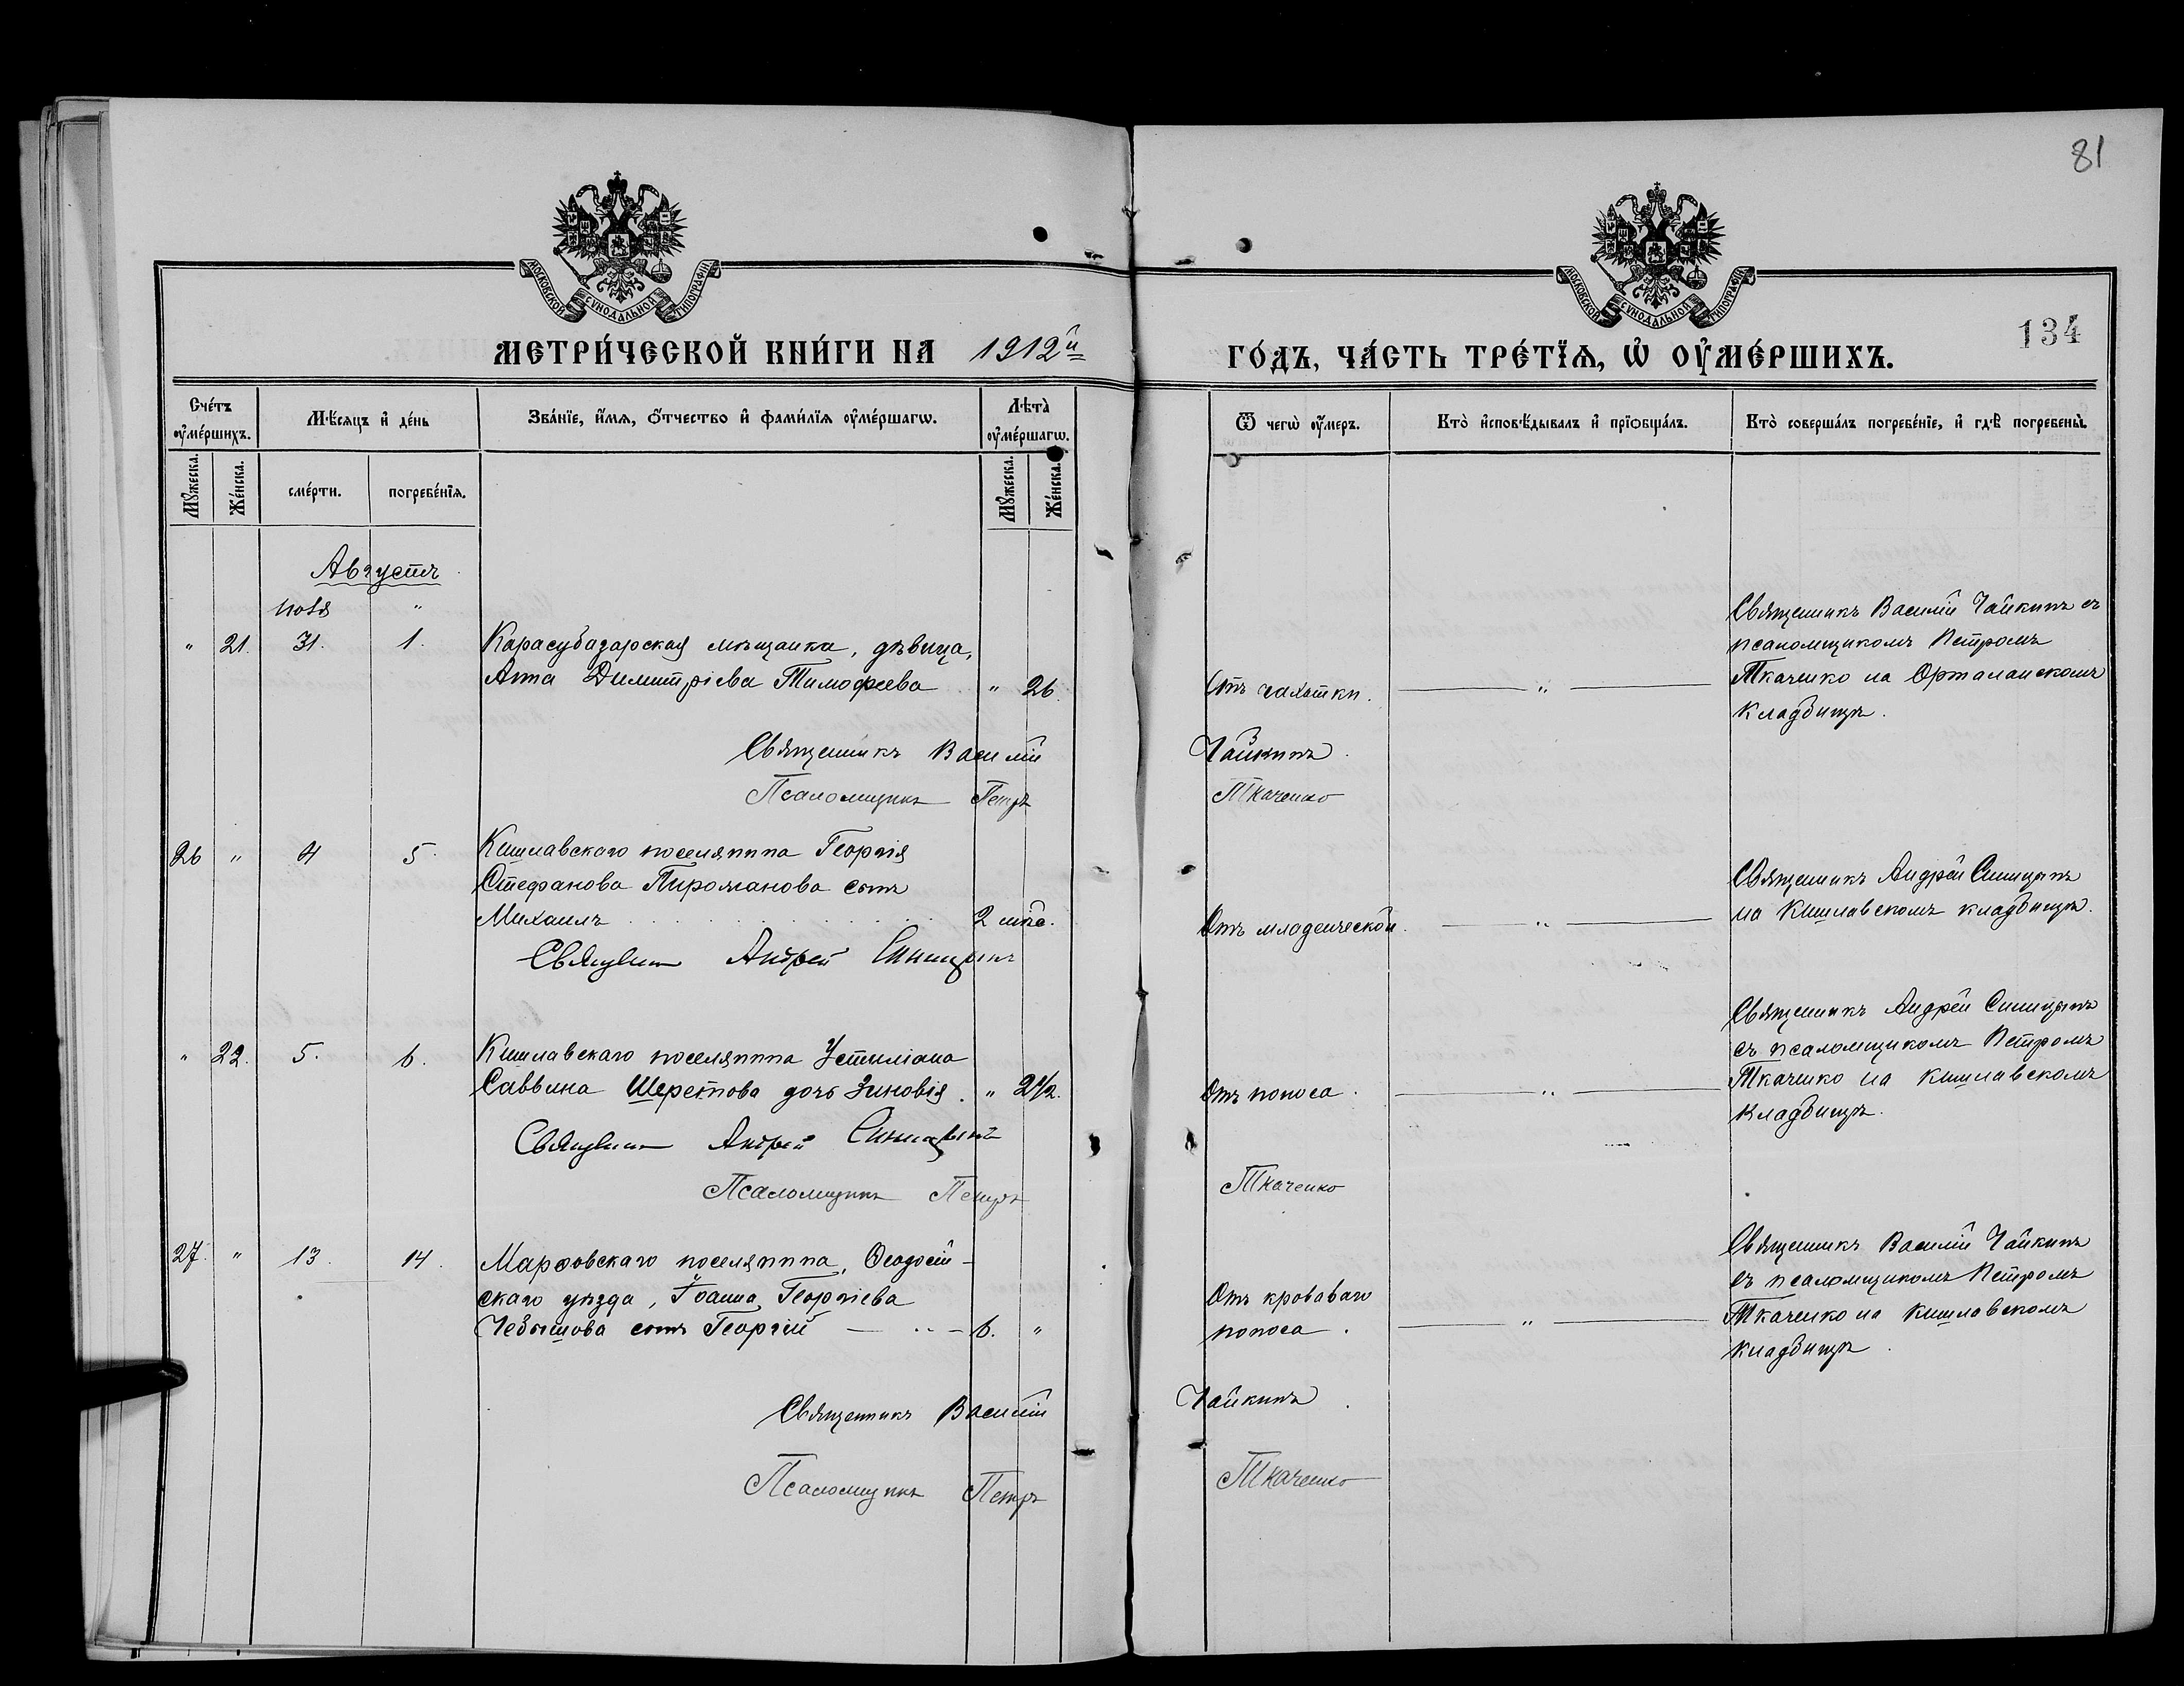 81
134
МОСКОВСКОЙ СѴНОДАЛЬНОЙ ТИПОГРАФІИ
МОСКОВСКОЙ СѴНОДАЛЬНОЙ ТИПОГРАФІИ
МЕТРИ́ЧЕСКОЙ КНИ́ГИ НА 1912й
ГО́ДЪ, ЧА́СТЬ ТРЕ́ТЇѦ, Ѡ҆ ОУ҆МЕ́РШИХЪ.
Сче́тъ оу҆ме́ршихъ.
Мѣ́сяцъ и҆ де́нь
Зва́нїе, и҆́мѧ, ѻ҆́тчество и҆ фами́лїѧ оу҆ме́ршагѡ.
Лѣ̑та̀ оу҆ме́ршагѡ.
Ѿ чегѡ̀ оу҆́меръ.
Кто̀ и҆сповѣ́дывалъ и҆ прїѡбща́лъ.
Кто̀ соверша́лъ погребе́нїе, и҆ гдѣ̀ погребены̀.
Мꙋ́жеска. Же́нска. сме́рти. погребе́нїѧ. Мꙋ́жеска. Же́нска.
Августъ
іюля "
" 21. 31. 1. Карасубазарская мѣщанка, дѣвица,
Анна Димитріева Тимофеева " 26.
Отъ чахотки. "
Священникъ Василій Чайкинъ съ
псаломщикомъ Петромъ
Ткаченко на Орталанскомъ
кладбищѣ.
Священникъ Василій Чайкинъ.
Псаломщикъ Петръ Ткаченко
26 " 4 5. Кишлавскаго поселянина Георгія
Стефанова Пироманова сынъ
Михаилъ 2 мѣс.
Отъ младенческой. "
Священникъ Андрей Синицынъ
на Кишлавскомъ кладбищѣ.
Священник Андрей Синицынъ
" 22. 5. 6. Кишлавскаго поселянина Устиліана
Саввина Шеретова дочь Зиновія. " 2½.
Отъ поноса. "
Священникъ Андрей Синицынъ
съ псаломщикомъ Петромъ
Ткаченко на Кишлавскомъ
кладбищѣ.
Священник Андрей Синицынъ
Псаломщикъ Петръ Ткаченко
27. " 13. 14. Марфовскаго поселянина, Ѳеодосій-
скаго уѣзда, Іоанна Георгіева
Чебышова сынъ Георгій 6. "
Отъ кроваваго
поноса. "
Священникъ Василій Чайкинъ
съ псаломщикомъ Петромъ
Ткаченко на Кишлавскомъ
кладбищѣ.
Священникъ Василій Чайкинъ.
Псаломщикъ Петръ Ткаченко